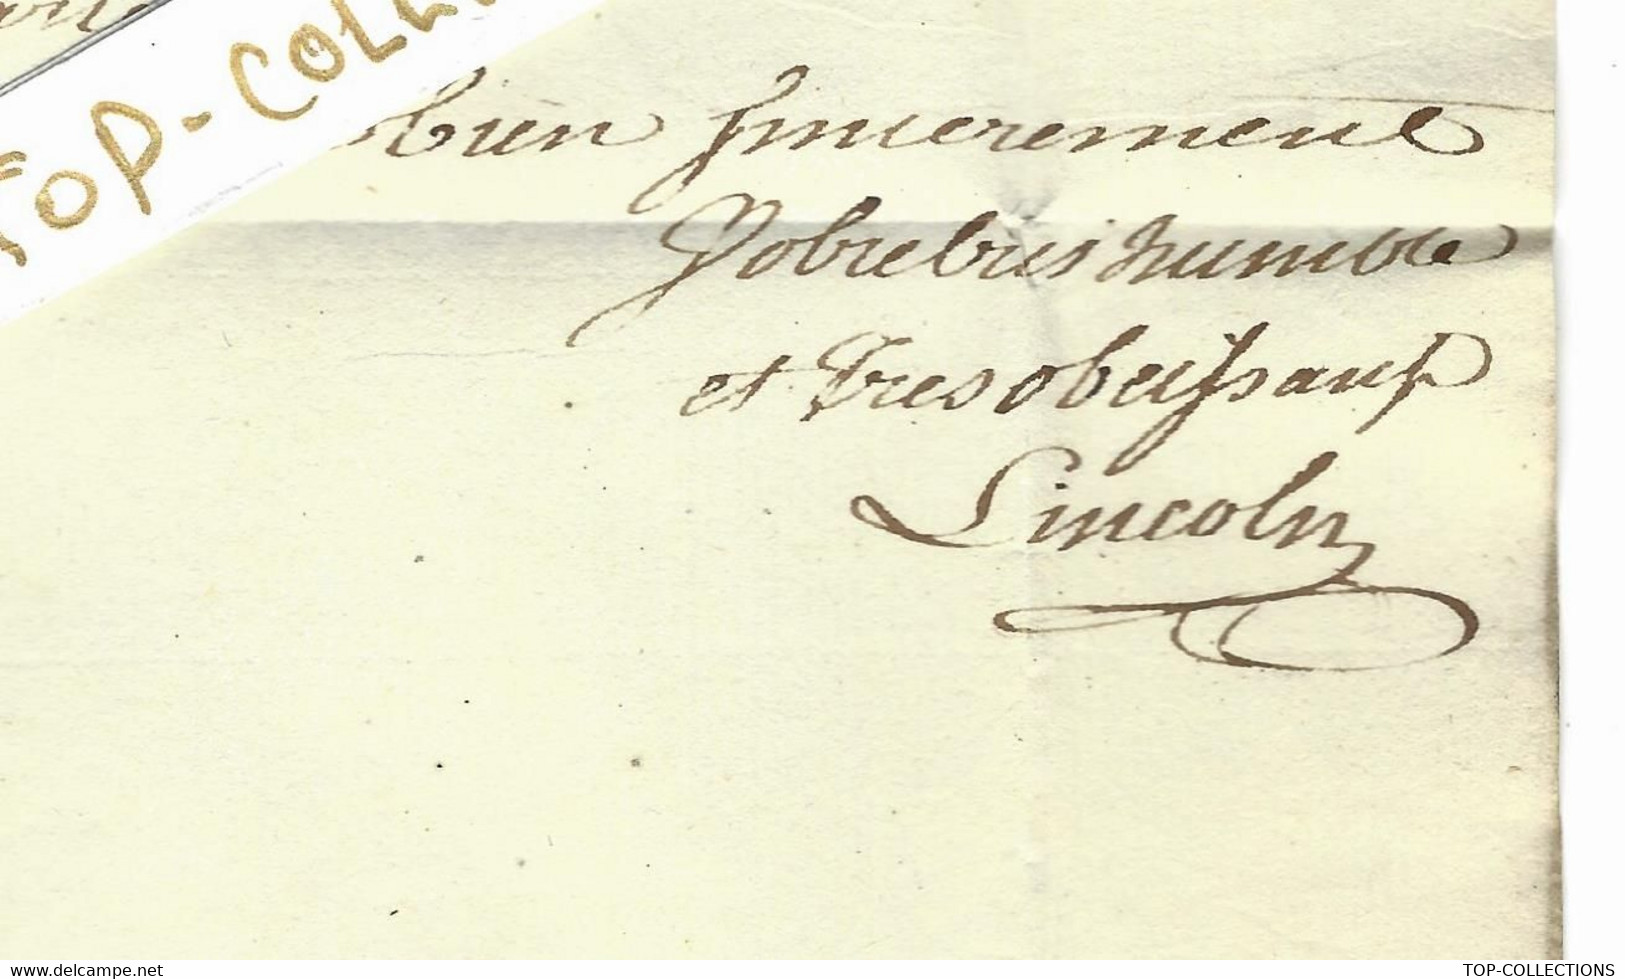 TOP-COLL
bien sincerement
Votre tres humble
et Tres obeissant
Lincoln
www.delcampe.net
TOP-COLLECTIONS